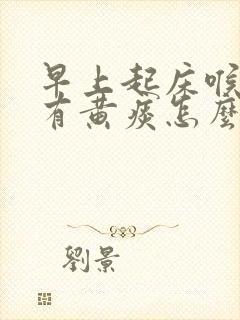 早上起床喉
有黄痰怎麽
劉景